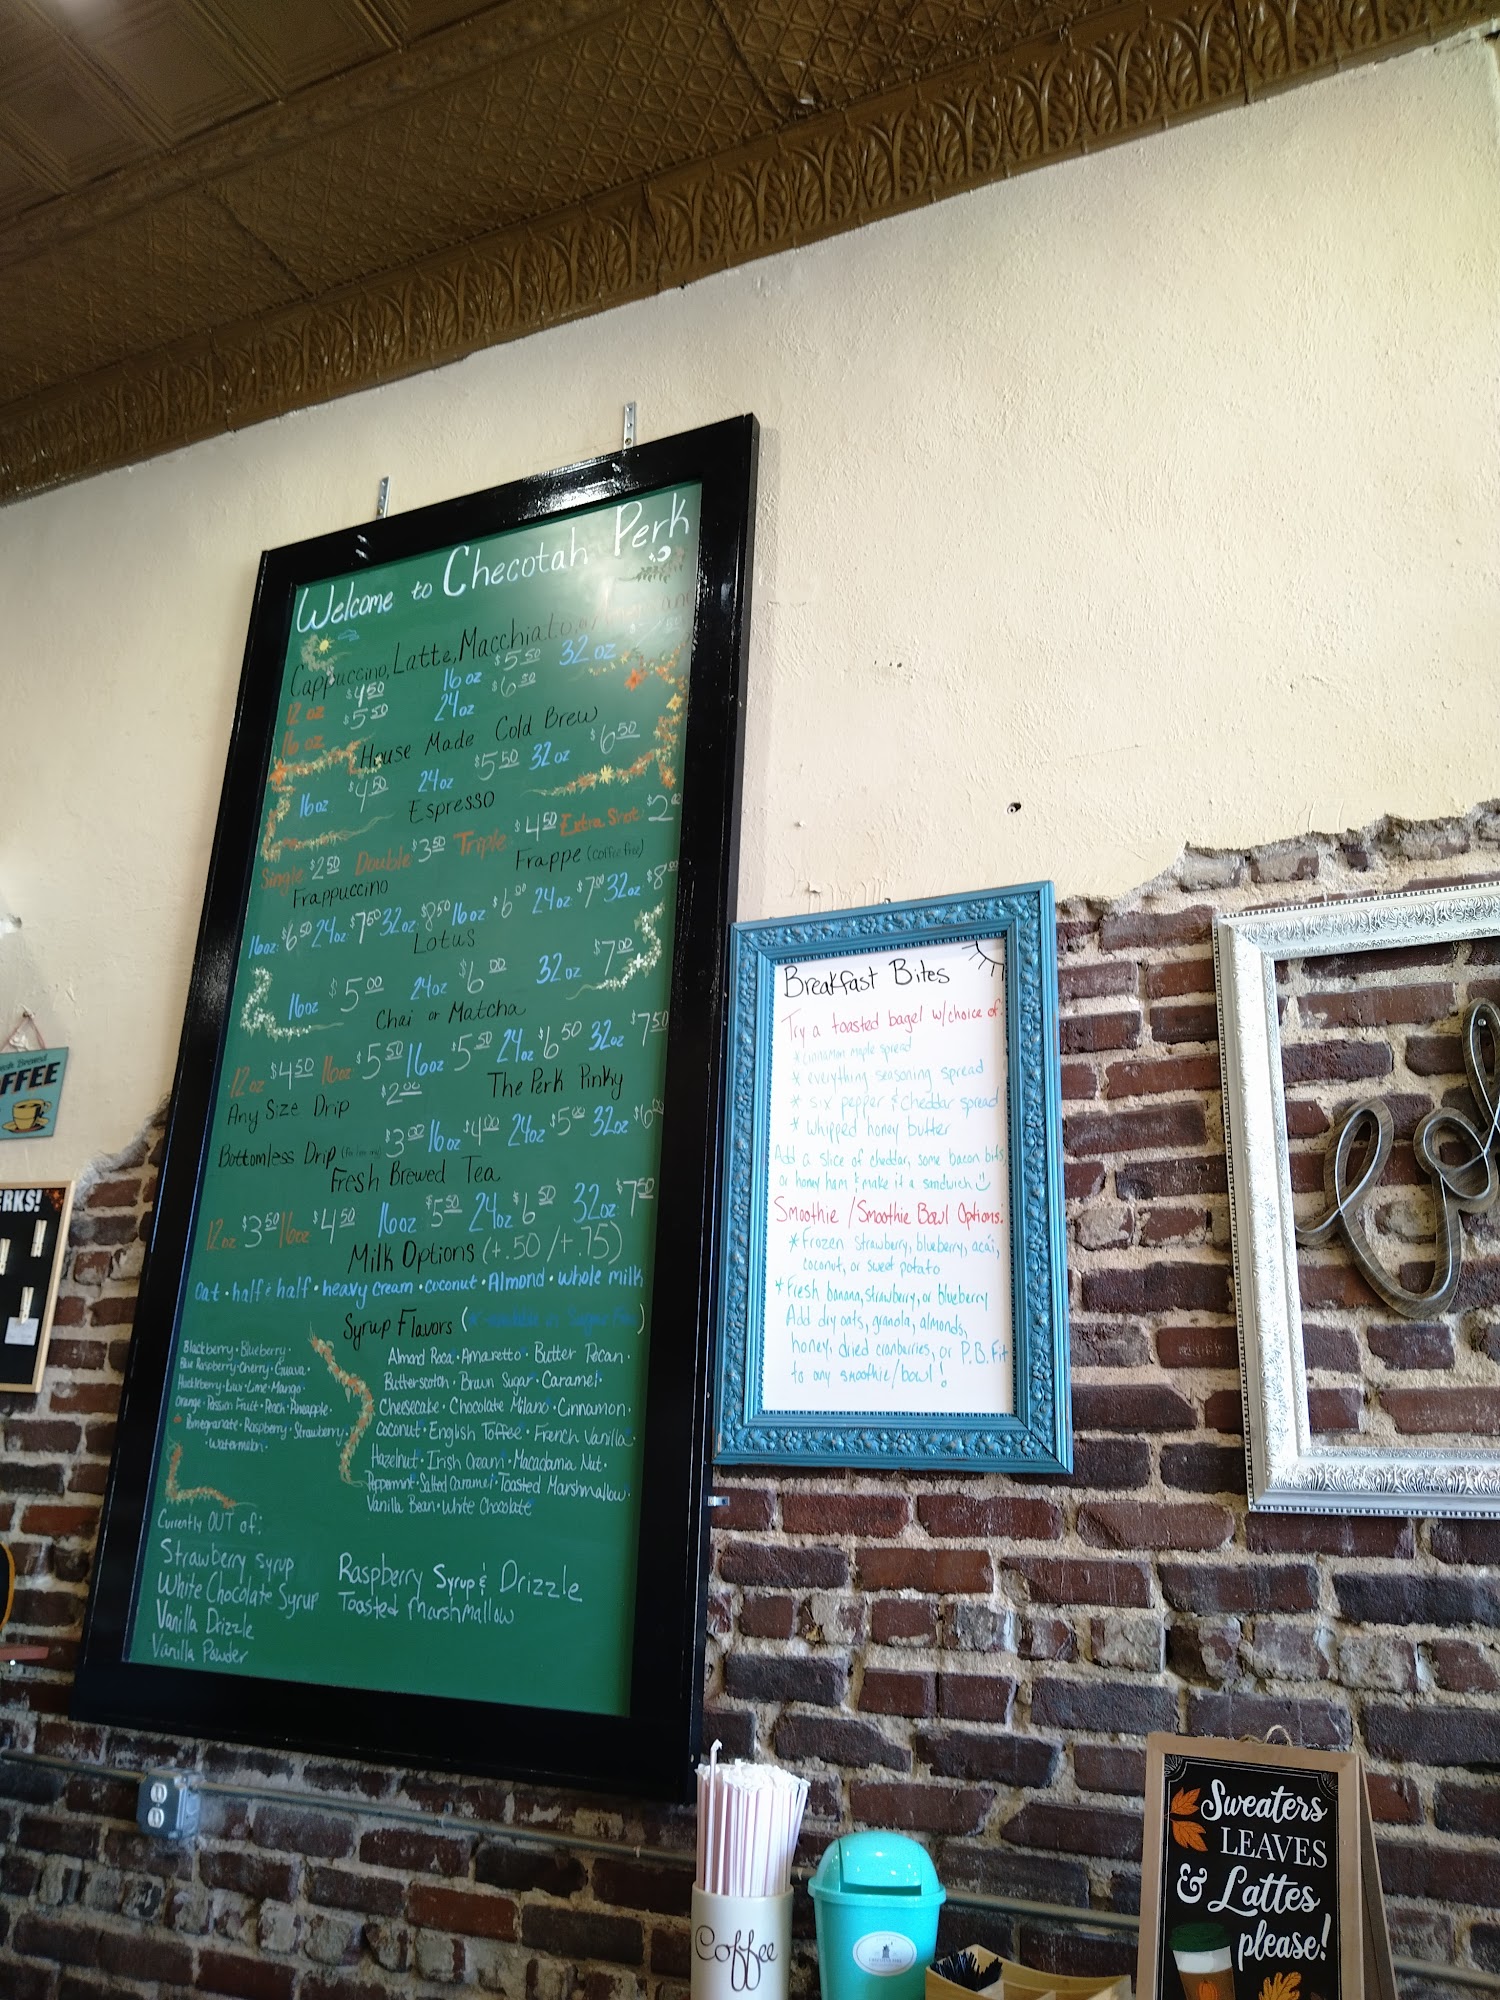 Welcome to Checotah Perk
Cappuccino, Latte, Macchiato,
12 oz $4.50 16 oz $5.50 32 oz
16 oz $5.50 24 oz $6.50
House Made Cold Brew
16 oz $4.50 24 oz $5.50 32 oz $6.50
Espresso
Single $2.50 Double $3.50 Triple $4.50 Extra Shot $2.00
Frappuccino
16oz: $6.50 24oz: $7.50 32oz: $8.50
Frappe (Coffee Free)
16oz $6.00 24oz $7.00 32oz $8.00
Lotus
16oz $5.00 24oz $6.00 32oz $7.00
Chai or Matcha
12oz $4.50 16oz $5.50 16oz $5.50 24oz $6.50 32oz $7.50
Any Size Drip $2.00
Bottomless Drip $3.00
The Perk Pinky
16oz $4.00 24oz $5.00 32oz $6.00
Fresh Brewed Tea
12oz $3.50 16oz $4.50 16oz $5.50 24oz $6.50 32oz $7.50
Milk Options (+.50/+.75)
Oat · half & half · heavy cream · coconut · Almond · whole milk
Syrup Flavors
Blackberry · Blueberry ·
Blue Raspberry · Cherry · Guava ·
Huckleberry · Lime · Mango ·
Orange · Passion Fruit · Peach · Pineapple ·
Pomegranate · Raspberry · Strawberry ·
· Watermelon ·
Almond Roca · Amaretto · Butter Pecan ·
Butterscotch · Brown Sugar · Caramel ·
Cheesecake · Chocolate Milano · Cinnamon ·
Coconut · English Toffee · French Vanilla ·
Hazelnut · Irish Cream · Macadamia Nut ·
Peppermint · Salted Caramel · Toasted Marshmallow ·
Vanilla Bean · White Chocolate
Currently OUT of:
Strawberry syrup
White Chocolate Syrup
Vanilla Drizzle
Vanilla Powder
Raspberry Syrup & Drizzle
Toasted Marshmallow
Breakfast Bites
Try a toasted bagel w/choice of:
* Cinnamon maple spread
* everything seasoning spread
* six pepper & cheddar spread
* whipped honey butter
Add a slice of cheddar, some bacon bits,
or honey ham & make it a sandwich
Smoothie/Smoothie Bowl Options.
* Frozen strawberry, blueberry, acai,
coconut, or sweet potato
* Fresh banana, strawberry, or blueberry
Add dry oats, granola, almonds,
honey, dried cranberries, or P.B. Fit
to any smoothie/bowl!
Brewed
FFEE
ERKS!
Coffee
Sweaters
LEAVES
& Lattes
please!